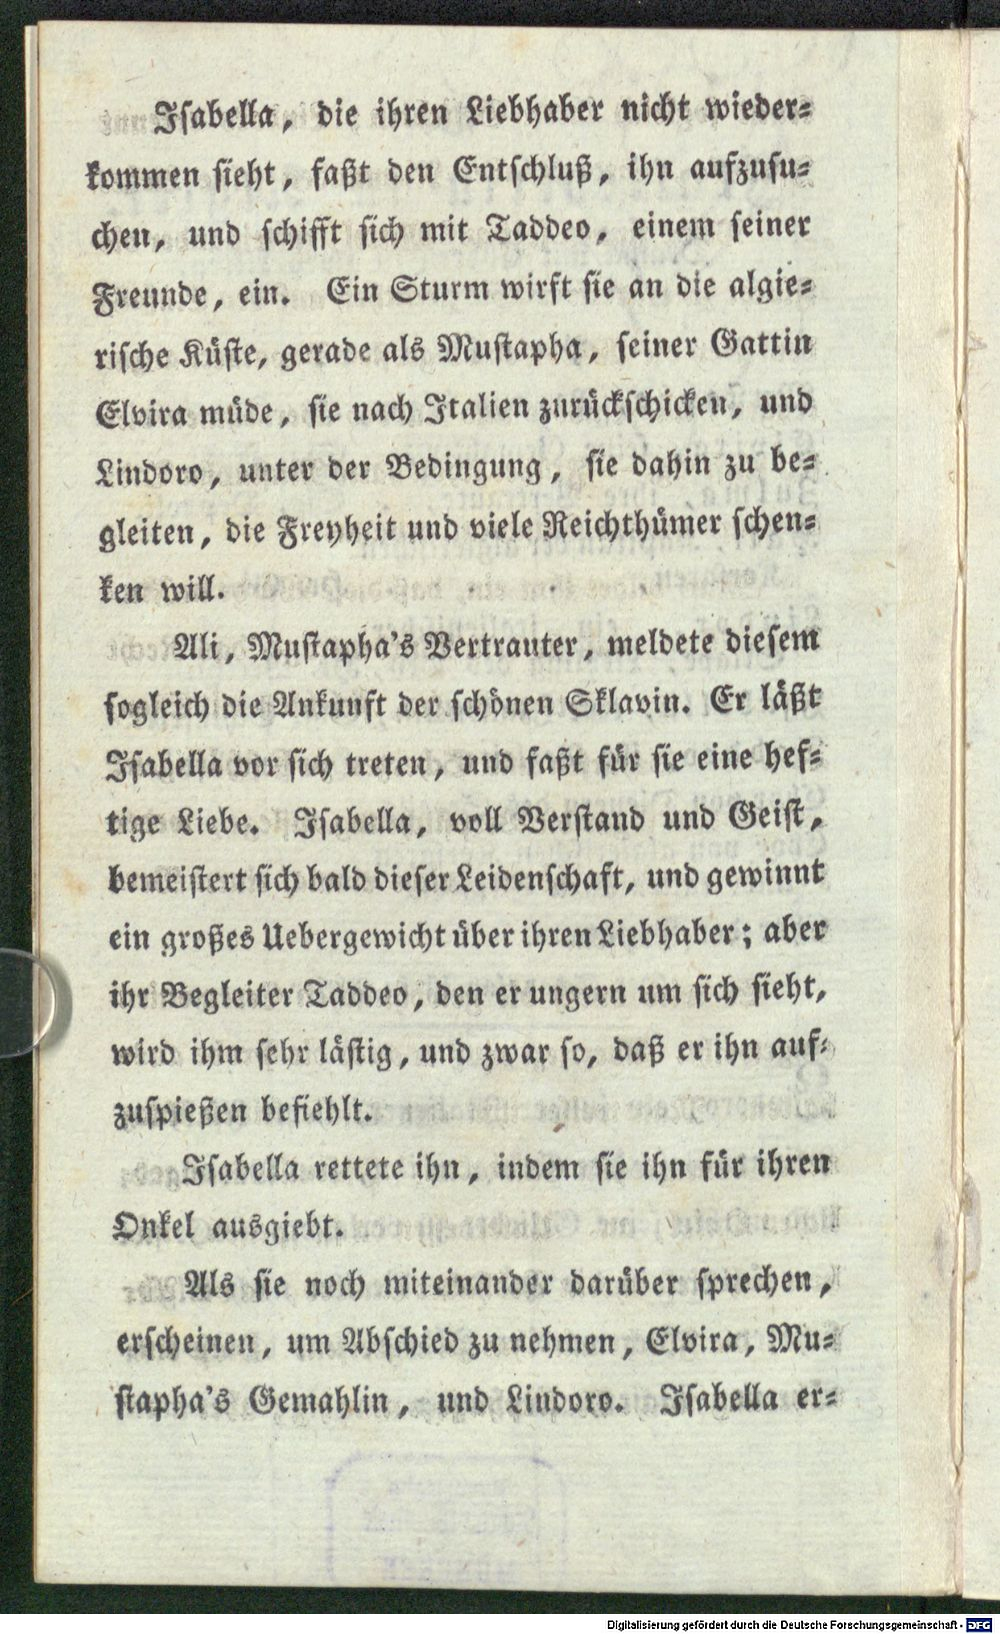 Isabella, die ihren Liebhaber nicht wieder-
kommen sieht, faßt den Entschluß, ihn aufzusu-
chen, und schifft sich mit Taddeo, einem seiner
Freunde, ein. Ein Sturm wirft sie an die algie-
rische Küste, gerade als Mustapha, seiner Gattin
Elvira müde, sie nach Italien zurückschicken, und
Lindoro, unter der Bedingung, sie dahin zu be-
gleiten, die Freyheit und viele Reichthümer schen-
ken will.
Ali, Mustapha's Vertrauter, meldete diesem
sogleich die Ankunft der schönen Sklavin. Er läßt
Isabella vor sich treten, und faßt für sie eine hef-
tige Liebe. Isabella, voll Verstand und Geist,
bemeistert sich bald dieser Leidenschaft, und gewinnt
ein großes Uebergewicht über ihren Liebhaber; aber
ihr Begleiter Taddeo, den er ungern um sich sieht,
wird ihm sehr lästig, und zwar so, daß er ihn auf-
zuspießen befiehlt.
Isabella rettete ihn, indem sie ihn für ihren
Onkel ausgiebt.
Als sie noch miteinander darüber sprechen,
erscheinen, um Abschied zu nehmen, Elvira, Mu-
stapha's Gemahlin, und Lindoro. Isabella er-
Digitalisierung gefördert durch die Deutsche Forschungsgemeinschaft - DFG